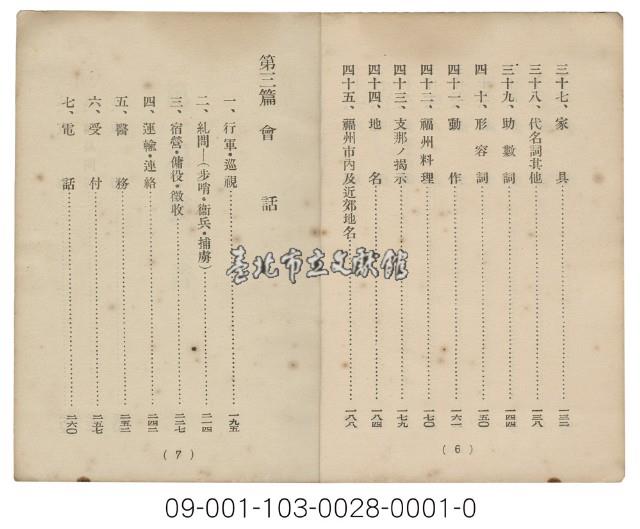 三十七、家具…一三二
三十八、代名詞其他…一三八
三十九、助數詞…一四四
四十、形容詞…一五〇
四十一、動作…一六一
四十二、福州料理…一七〇
四十三、支那ノ揭示…一七九
四十四、地名…一八四
四十五、福州市內及近郊地名…一八八
(6)
第三篇 會話
一、行軍・巡視…一九五
二、糺問—(步哨・衞兵・捕虜)…二一四
三、宿營・傭役・徵收…二二七
四、運輸・連絡…二四二
五、醫務…二五二
六、受付…二五七
七、電話…二六〇
(7)
臺北市立文獻館
09-001-103-0028-0001-0